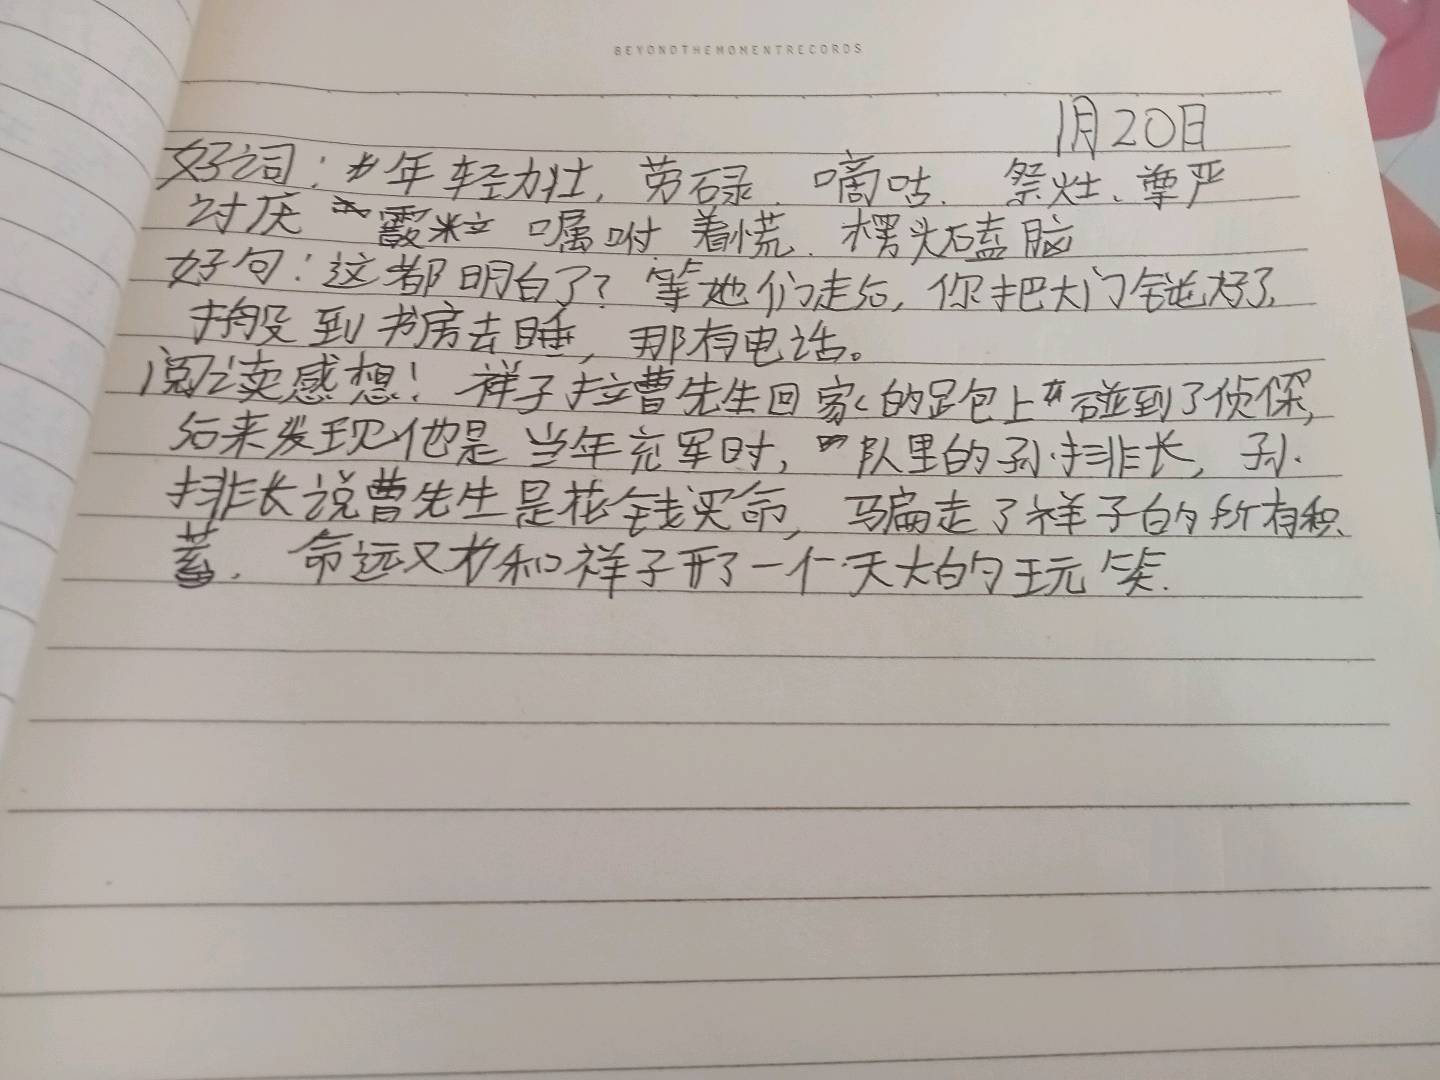 BEYONDTHEMOMENTRECORDS
1月20日
好词：年轻力壮，劳碌．嘀咕．祭灶、尊严
讨厌 霰粒 嘱咐 着慌．楞头磕脑
好句：这都明白了？等她们走后，你把大门锁好了，
搬到书房去睡，那有电话。
阅读感想！祥子拉曹先生回家的路上碰到了侦探，
后来发现他是当年充军时，队里的孙排长，孙
排长说曹先生是花钱买命，骗走了祥子的所有积
蓄．命远又和祥子开了一个天大的玩笑．